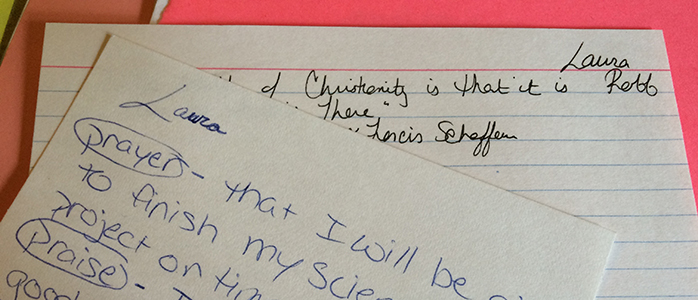 Laura
of Christianity is that it is Robb
There"
Francis Schaeffer
Laura
prayer - that I will be
to finish my scien
project on tim
praise -
good